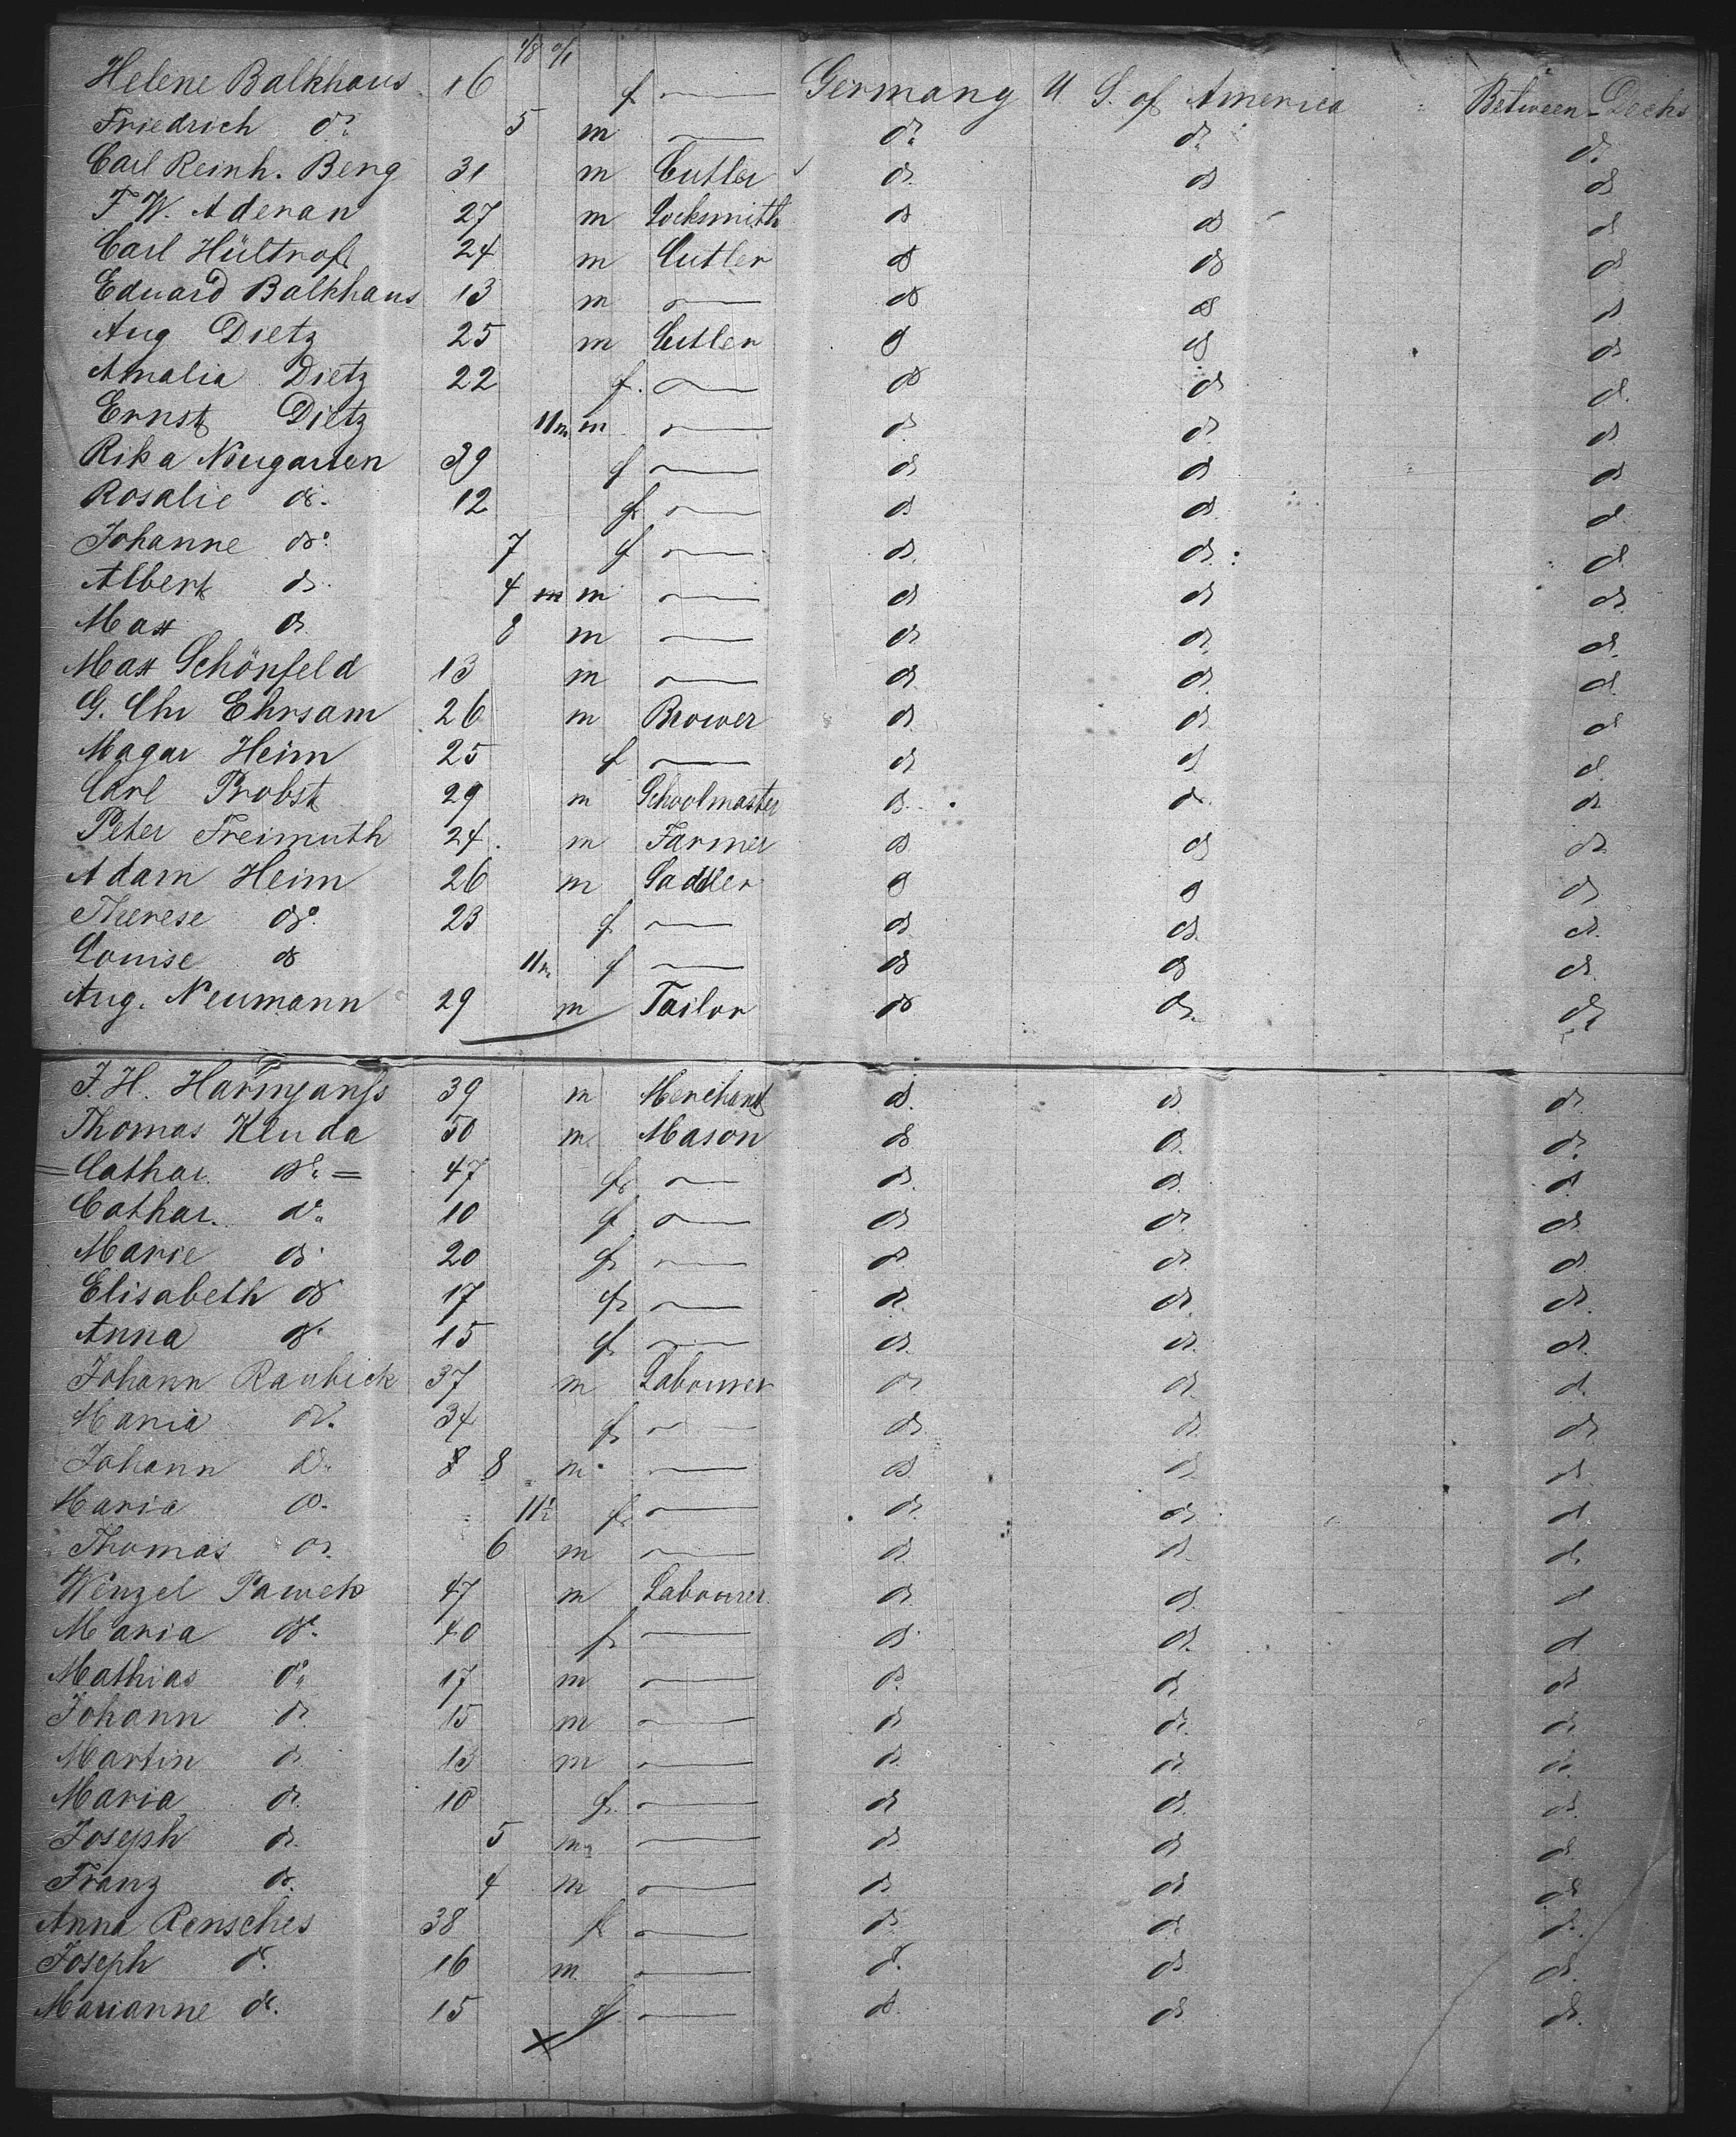 1/8 0/1
Helene Balkhaus 16 f — Germany U. S. of America Between-Decks
Friedrich do 5 m — do do do
Carl Reinh. Berg 31 m Cutler do do do
F. W. Aderan 27 m Locksmith do do do
Carl Hültrop 24 m Cutler do do do
Eduard Balkhaus 13 m — do do do
Aug Dietz 25 m Cutler do do do
Amalia Dietz 22 f. — do do do
Ernst Dietz 11m m — do do do
Rika Neugarten 39 f — do do do
Rosalie do. 12 f — do do do
Johanne do. 7 f — do do do
Albert do 4 m m — do do do
Max do 8 m — do do do
Max Schönfeld 13 m — do do do
G. Chr Ehrsam 26 m Brower do do do
Magar Heim 25 f — do do do
Carl Probst 29 m Schoolmaster do do do
Peter Freimuth 24. m Farmer do do do
Adam Heim 26 m Sadler do do do
Therese do. 23 f — do do do
Louise do 11m f — do do do
Aug. Neumann 29 m Tailor do do do
J. H. Harmjanss 39 m Merchant do do do
Thomas Kluda 50 m Mason do do do
= Cathar. do = 47 f — do do do
Cathar. do 10 f — do do do
Marie do 20 f — do do do
Elisabeth do 17 f — do do do
Anna do 15 f — do do do
Johann Raubick 37 m Labourer do do do
Maria do. 34 f — do do do
Johann do. 8 8 m — do do do
Maria do. 11 1/2 f — do do do
Thomas do. 6 m — do do do
Wenzel Pawek 47 m Labourer do do do
Maria do. 40 f — do do do
Mathias do 17 m — do do do
Johann do 15 m — do do do
Martin do 13 m — do do do
Maria do. 10 f — do do do
Joseph do. 5 m — do do do
Franz do. 4 m — do do do
Anna Rensches 38 f — do do do
Joseph do. 16 m — do do do
Marianne do. 15 f — do do do